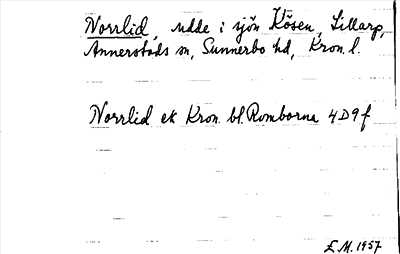 Norrlid, udde i sjön Kösen, Lillarp,
Annerstads sn, Sunnerbo hd, Kron. l.
Norrlid ek Kron. bl. Romborna 4D9f
L.M. 1957